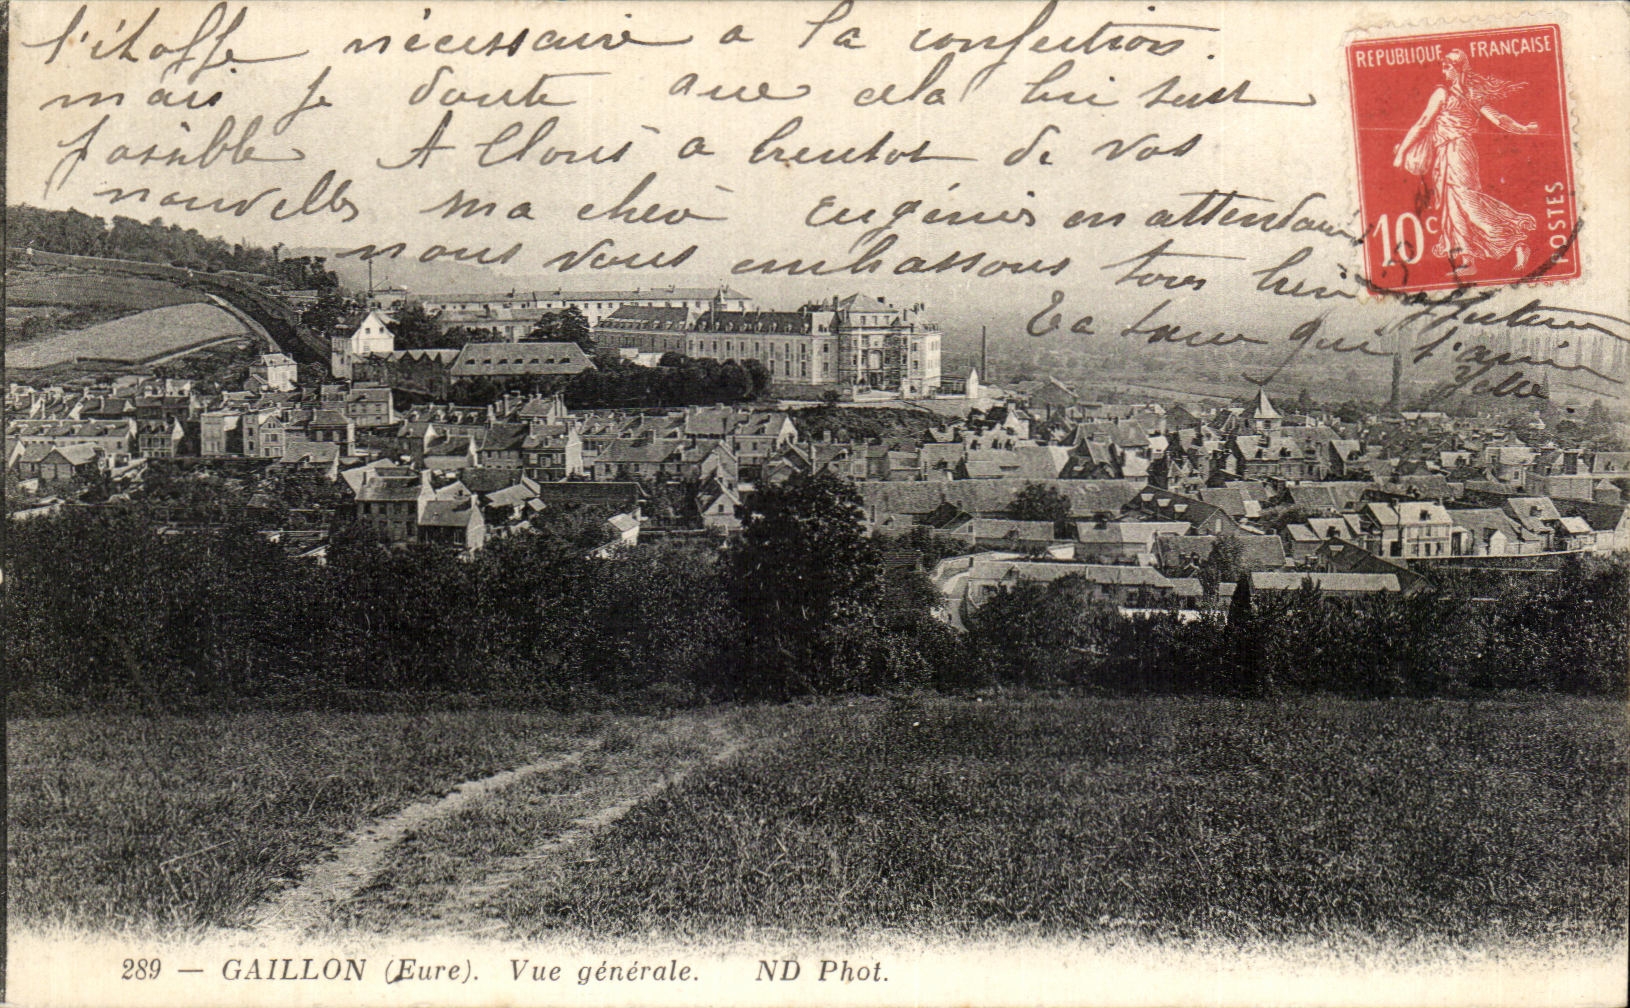 l'étoffe nécessaire a la confection.
mais je doute que cela lui soit
possible Allons a bientot de vos
nouvelles ma cher Eugénie en attendant
nous vous embrassons tous bien affectueusement
Ta soeur qui t'aime
RÉPUBLIQUE FRANÇAISE
10c
POSTES
289 — GAILLON (Eure). Vue générale. ND Phot.